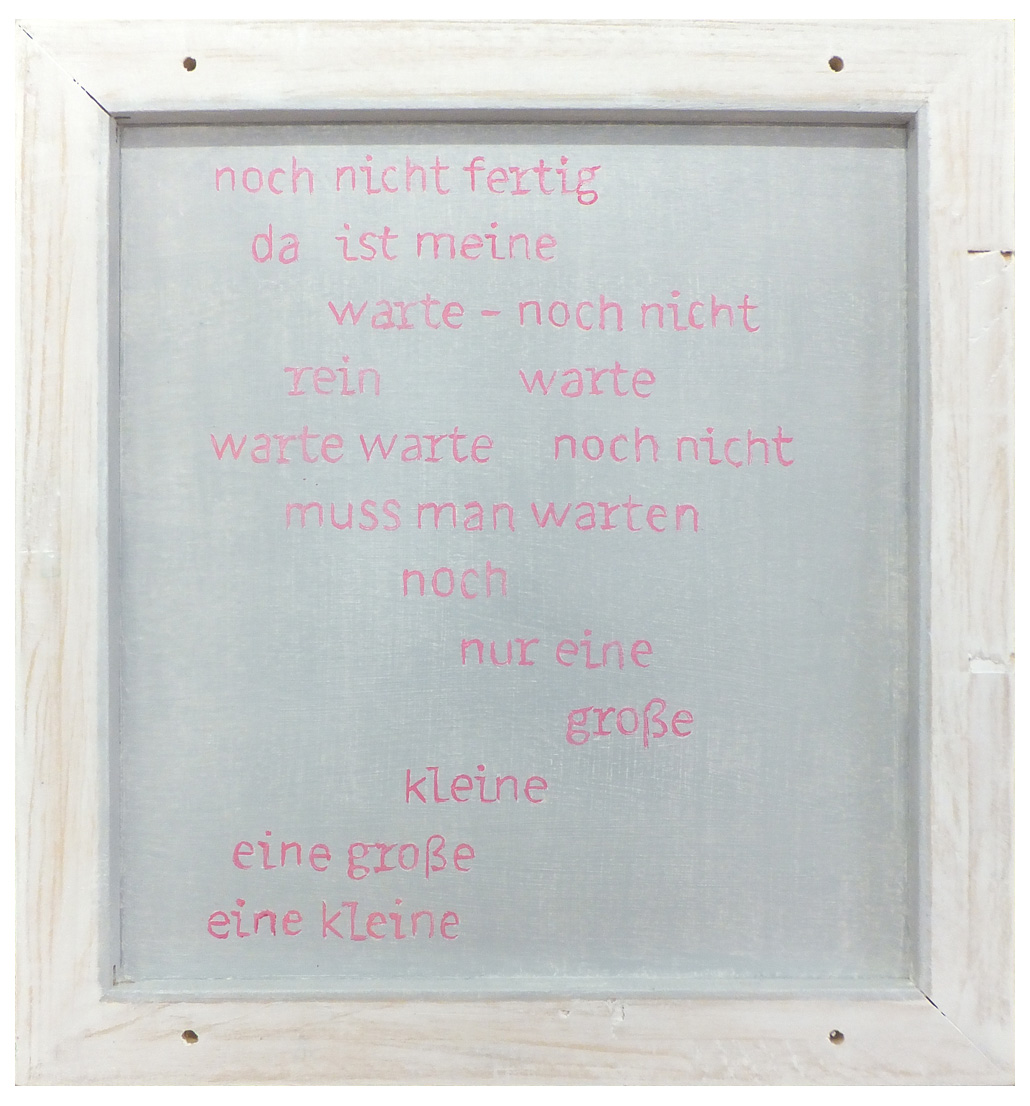 noch nicht fertig
da ist meine
warte – noch nicht
rein warte
warte warte noch nicht
muss man warten
noch
nur eine
große
kleine
eine große
eine kleine